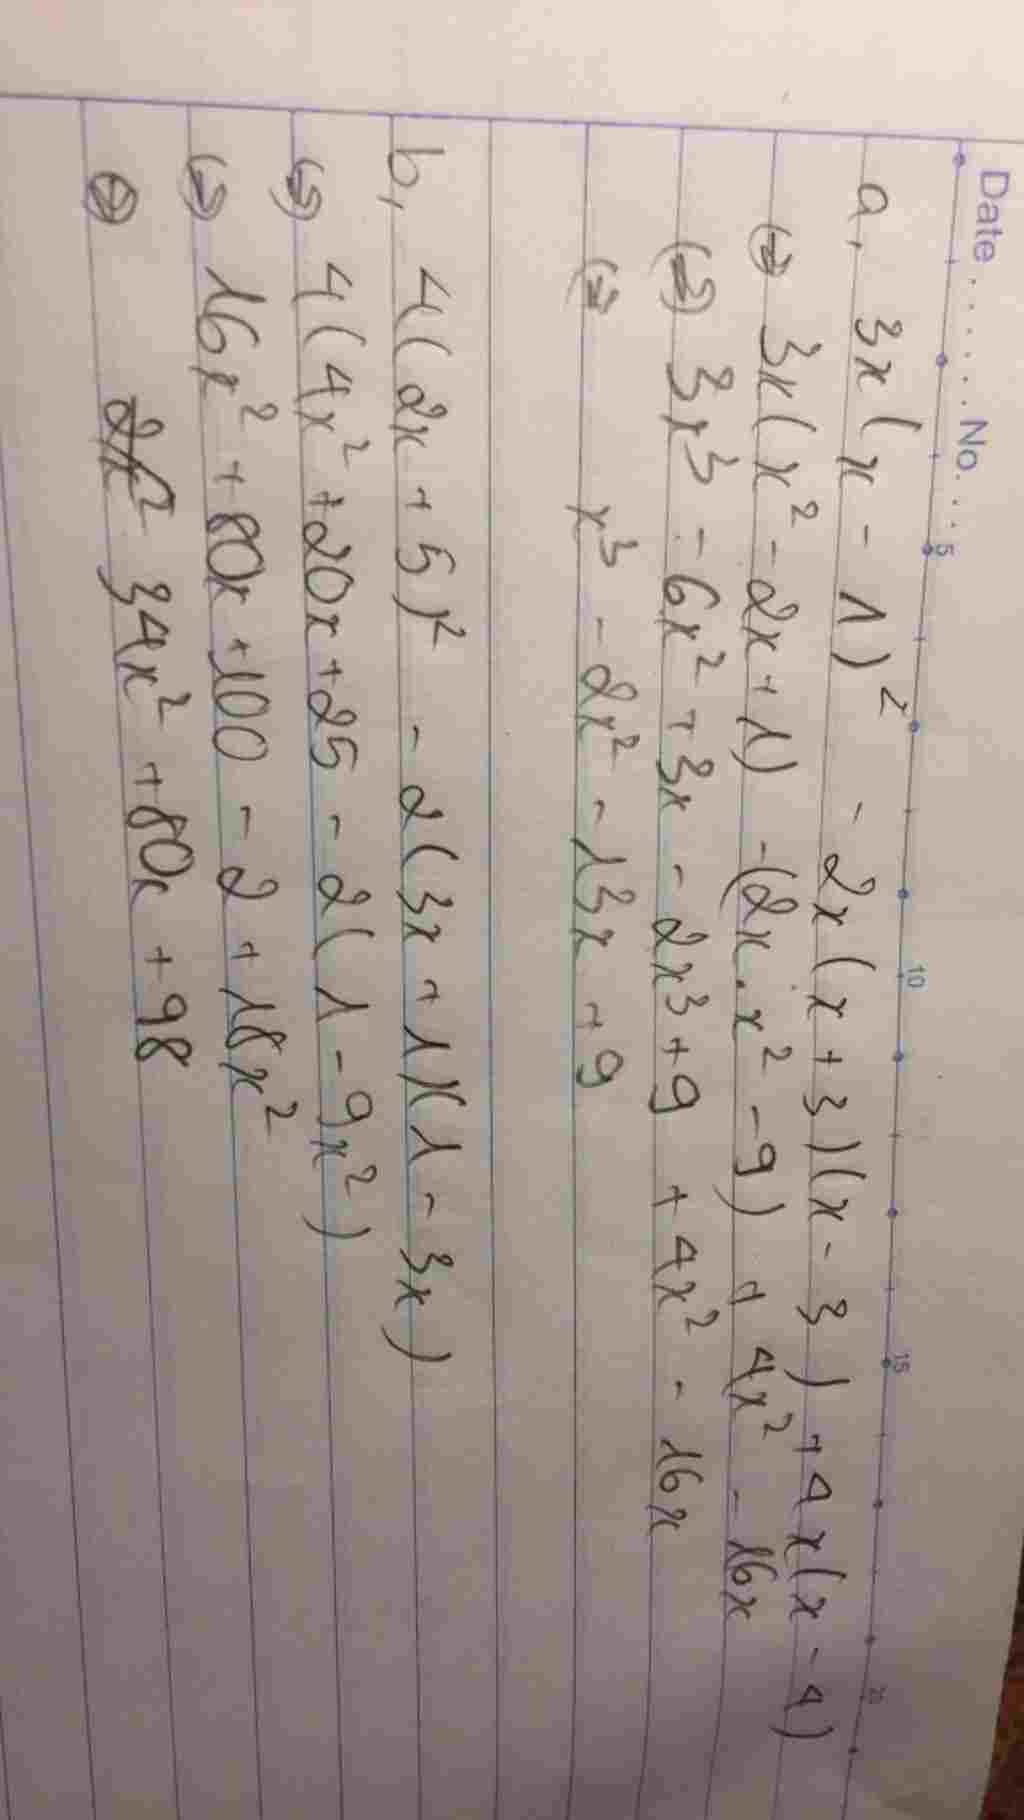 Date ...... No. ...
5 10 15 20
a, 3x(x - 1)² - 2x(x + 3)(x - 3) + 4x(x - 4)
(=) 3x(x² - 2x + 1) - (2x . x² - 9) + 4x² - 16x
(=) 3x³ - 6x² + 3x - 2x³ + 9 + 4x² - 16x
(=) x³ - 2x² - 13x + 9
b, 4(2x + 5)² - 2(3x + 1)(1 - 3x)
(=) 4(4x² + 20x + 25 - 2(1 - 9x²)
(=) 16x² + 80x + 100 - 2 + 18x²
(=) 34x² + 80x + 98